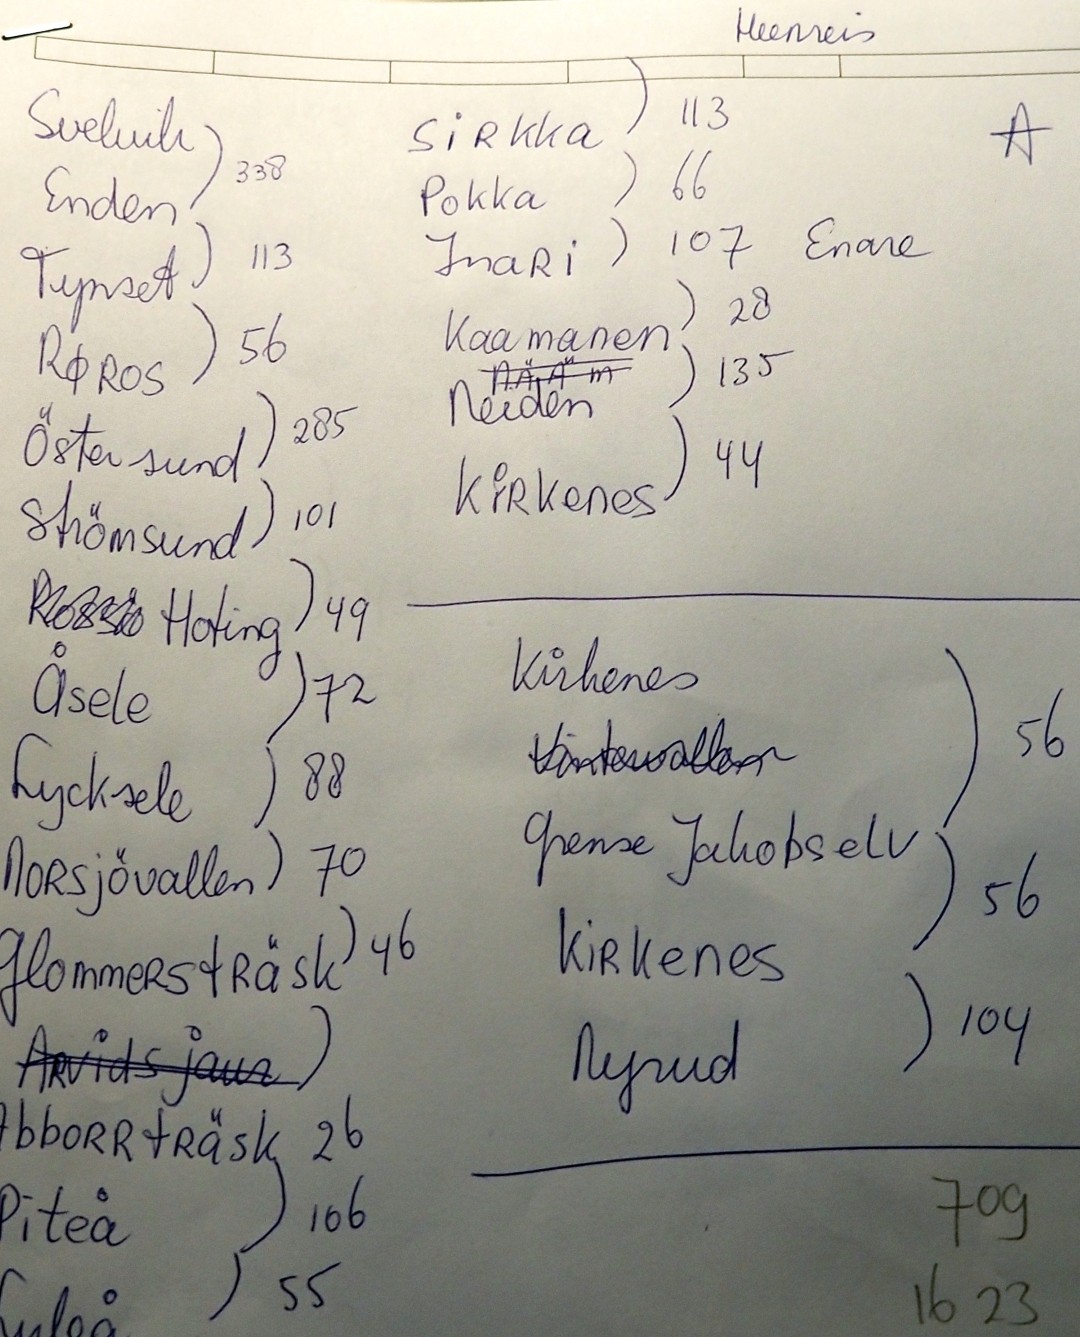 Heenreis
A
Svelvik
338
Enden
113
Tynset
56
RØROS
285
Östersund
101
Strömsund
49
Hoting
72
Åsele
88
Lycksele
70
Norsjövallen
46
Glommersträsk
Arvidsjaur
Abborrträsk 26
Piteå
106
55
Luleå
113
SIRKKA
66
Pokka
107 Enare
InaRi
28
Kaamanen
NÄÄTÄm
135
Neiden
44
KIRKenes
Kirkenes
56
Grense Jakobselv
56
KIRKenes
104
Nyrud
709
1623